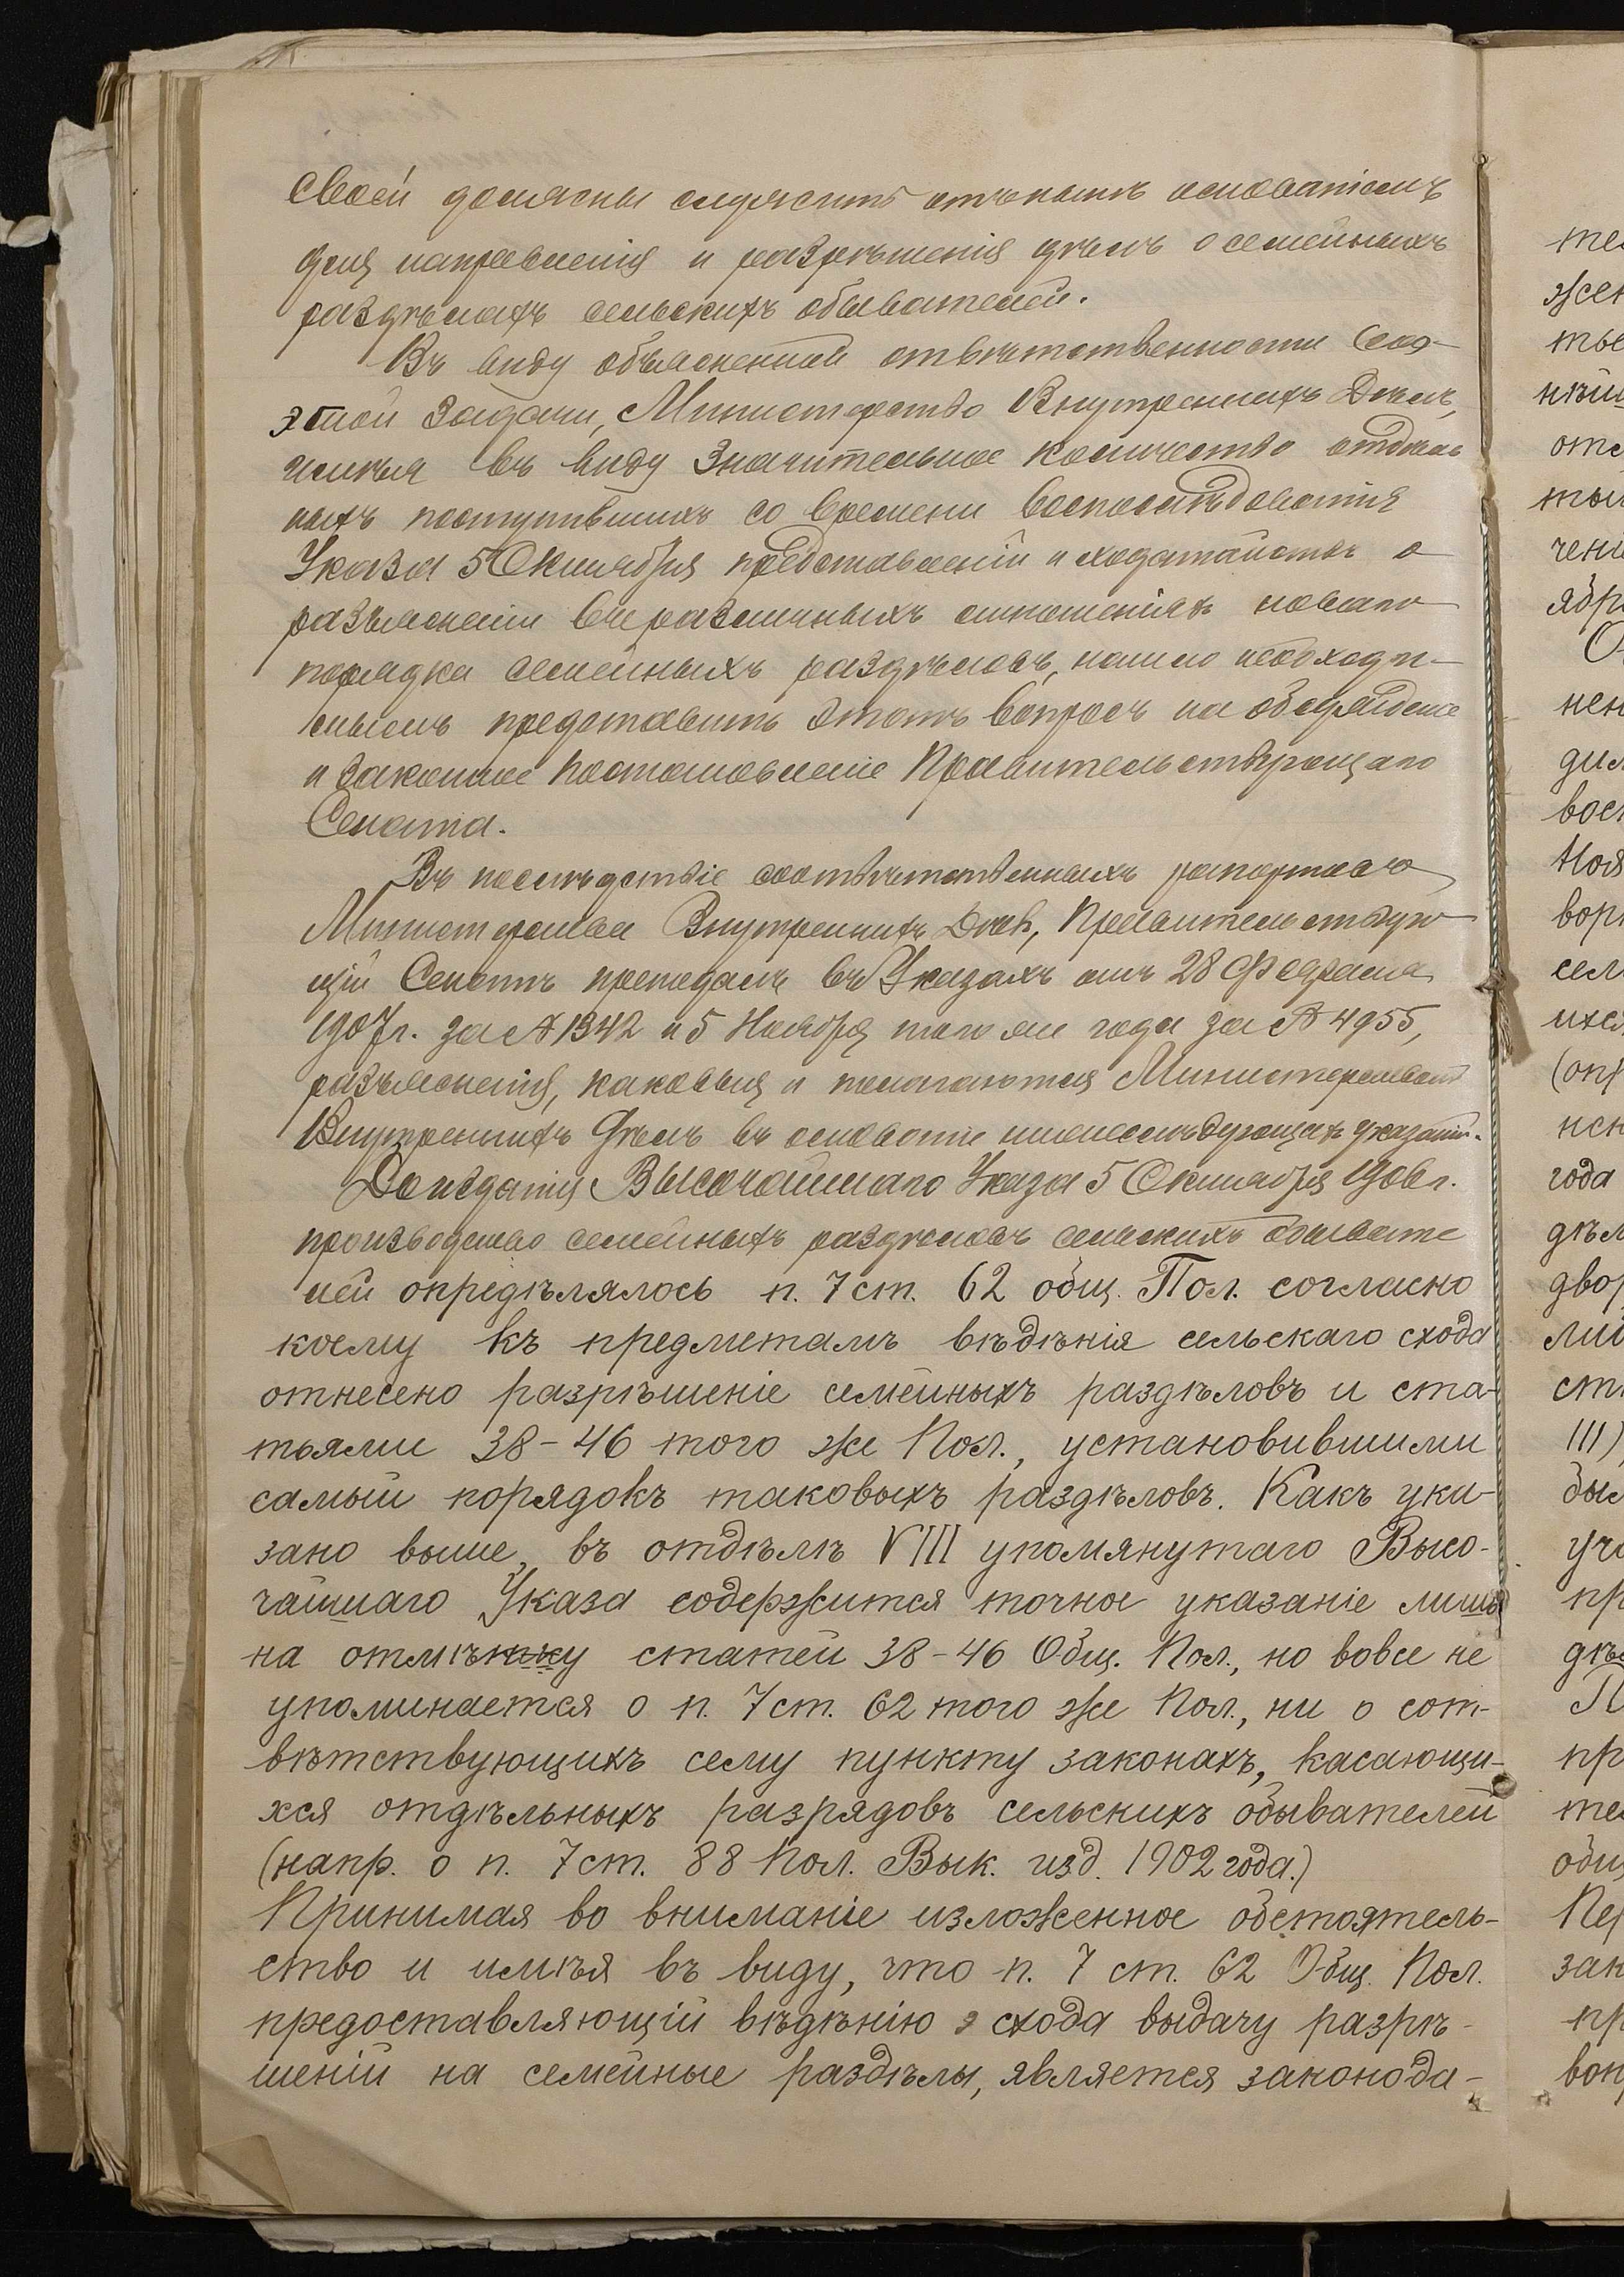 своей должны служить основаніемъ
для направленія и разрѣшенія дѣлъ о семейныхъ
раздѣлахъ сельскихъ обывателей.
Въ виду объясненной отвѣтственности
этой задачи, Министерство Внутреннихъ Дѣлъ,
имѣя въ виду значительное количество отдѣль
ныхъ поступившихъ со времени воспослѣдованія
Указа 5 Октября представленій и ходатайствъ о
разъясненіи въ различныхъ отношеніяхъ новаго
порядка семейныхъ раздѣловъ, нашло необходи-
мымъ представить этотъ вопросъ на обсужденіе
и законное постановленіе Правительствующаго
Сената.
Въ послѣдствіе соотвѣтственныхъ рапортовъ
Министерства Внутреннихъ Дѣлъ, Правительствую
щій Сенатъ преподалъ въ Указахъ отъ 28 Февраля
1907 г. за № 1342 и 5 Ноября того же года за № 4955,
разъясненія, каковыя и полагаются Министерствомъ
Внутреннихъ Дѣлъ въ основаніе нижеслѣдующихъ указаній.
До изданія Высочайшаго Указа 5 Октября 1906 г.
производство семейныхъ раздѣловъ сельскихъ обывате
лей опредѣлялось п. 7 ст. 62 общ. Пол. согласно
коему къ предметамъ вѣдѣнія сельскаго схода
отнесено разрѣшеніе семейныхъ раздѣловъ и ста-
тьями 38-46 того же Пол., установившими
самый порядокъ таковыхъ раздѣловъ. Какъ ука-
зано выше, въ отдѣлѣ VIII упомянутаго Высо-
чайшаго Указа содержится точное указаніе лишь
на отмѣну статей 38-46 Общ. Пол., но вовсе не
упоминается о п. 7 ст. 62 того же Пол., ни о сот-
вѣтствующихъ сему пункту законахъ, касающи-
хся отдѣльныхъ разрядовъ сельскихъ обывателей
(напр. о п. 7 ст. 88 Пол. Вык. изд. 1902 года.)
Принимая во вниманіе изложенное обстоятель-
ство и имѣя въ виду, что п. 7 ст. 62 Общ. Пол.
предоставляющій вѣдѣнію схода выдачу разрѣ-
шеній на семейные раздѣлы, является законода-